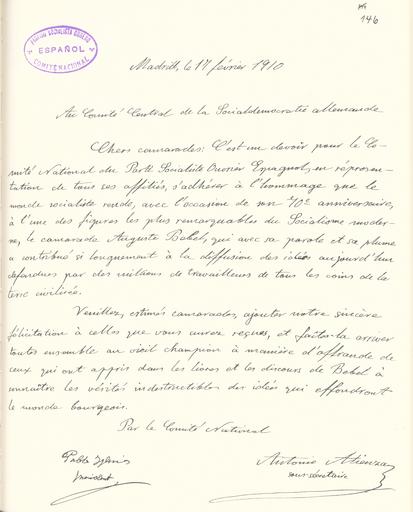 146
PARTIDO SOCIALISTA OBRERO
ESPAÑOL
COMITÉ NACIONAL
Madrid, le 17 février 1910
Au Comité Central de la Socialdemocratie allemande
Chers camarades: C'est un devoir pour le Co-
mité National du Parti Socialiste Ouvrier Espagnol, en représen-
tation de tous ses affiliés, s'adhérer à l'hommage que le
monde socialiste rende, avec l'occasion de son 70e anniversaire,
à l'une des figures les plus remarquables du Socialisme moder-
ne, le camarade Auguste Bebel, qui avec sa parole et sa plume
a contribué si longuement à la diffusion des idées aujourd'hui
defendues par des millions de travailleurs de tous les coins de la
terre civilisée.
Veuillez, estimés camarades, ajouter notre sincère
félicitation à celles que vous aurez reçues, et faites-la arriver
toutes ensemble au vieil champion à manière d'offrande de
ceux qui ont appris dans les livres et les discours de Bebel à
connaître les vérités indestructibles des idées qui effondront
le monde bourgeois.
Par le Comité National
Pablo Iglesias
president
Antonio Atienza
sous-sécretaire